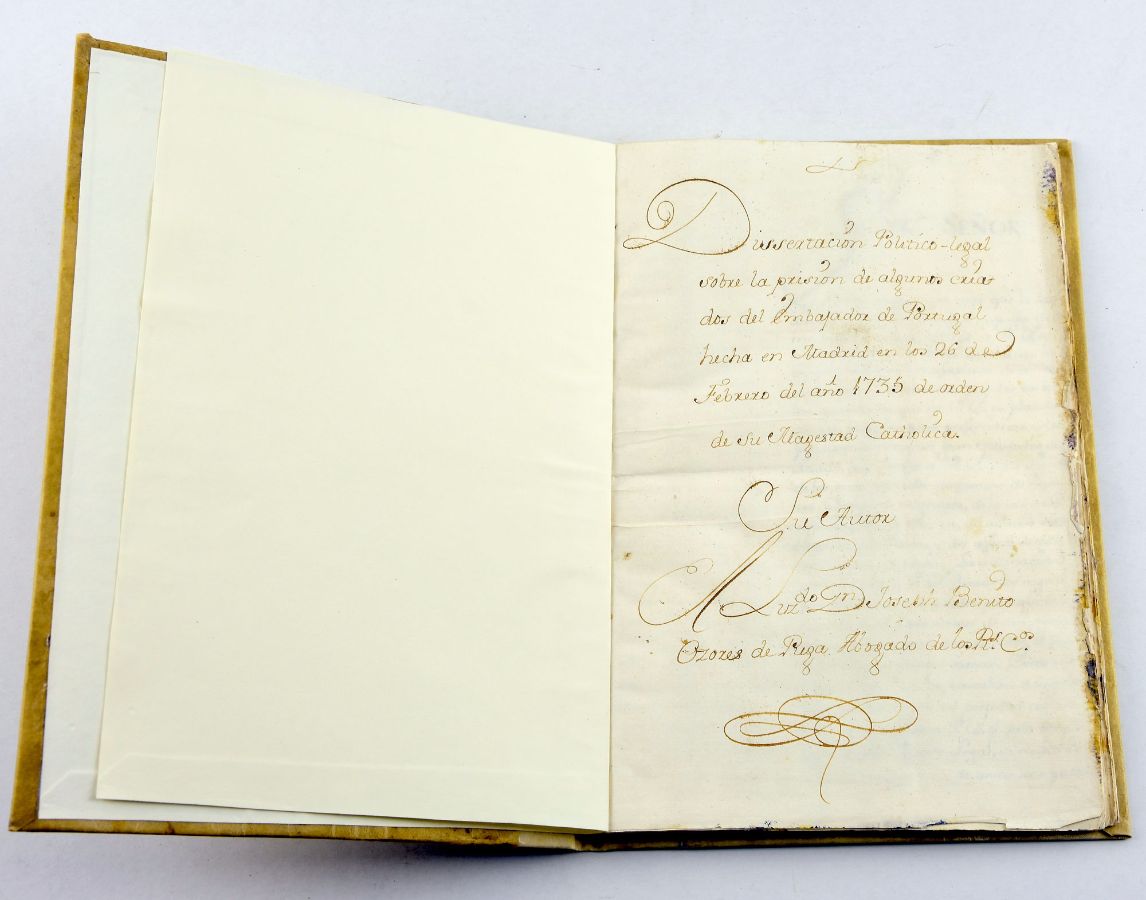 Dissertación Politico-legal
sobre la prisión de algunos cria-
dos del embajador de Portugal
hecha en Madrid en los 26 de
Febrero del año 1735 de orden
de Su Magestad Catholica.
Su Autor
El Lizdo Dn Joseph Benito
Ozores de Puga Abogado de los Rs. Cos.